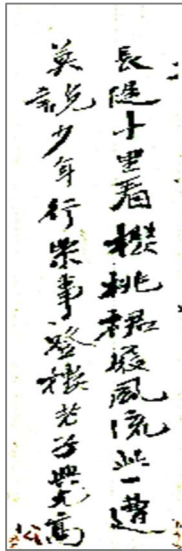 長堤十里看櫻桃裙屐風流此一遭
莫說少年行樂事登樓老子興尤高